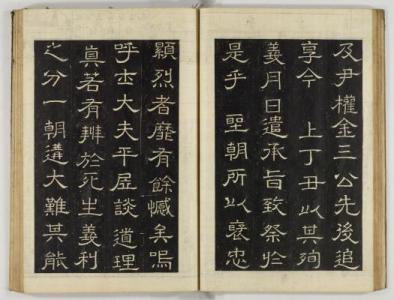 及尹權金三公先後追
享今上丁丑以其殉
義月日遣承旨致祭於
是乎聖朝所以褒忠
顯烈者靡有餘憾矣嗚
呼士大夫平居談道理
眞若有辨於死生義利
之分一朝遘大難其能